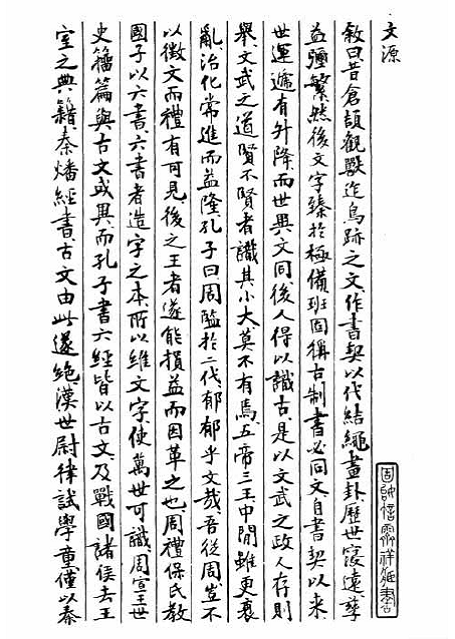 文源
敘曰昔倉頡觀獸迹鳥跡之文作書契以代結繩畫卦歷世寖遠孳
益彊繁然後文字臻於極備班固稱古制書必同文自書契以來
世運遞有升降而世異文同後人得以識古是以文武之政人存則
舉文武之道賢不賢者識其小大莫不有焉五帝三王中閒雖更衰
亂治化常進而益隆孔子曰周監於二代郁郁乎文哉吾從周豈不
以徵文而禮有可見後之王者遂能損益而因革之也周禮保氏教
國子以六書六書者造字之本所以維文字使萬世可識周宣王世
史籀篇與古文或異而孔子書六經皆以古文及戰國諸侯去王
室之典籍秦燔經書古文由此遂絕漢世尉律試學童僅以秦